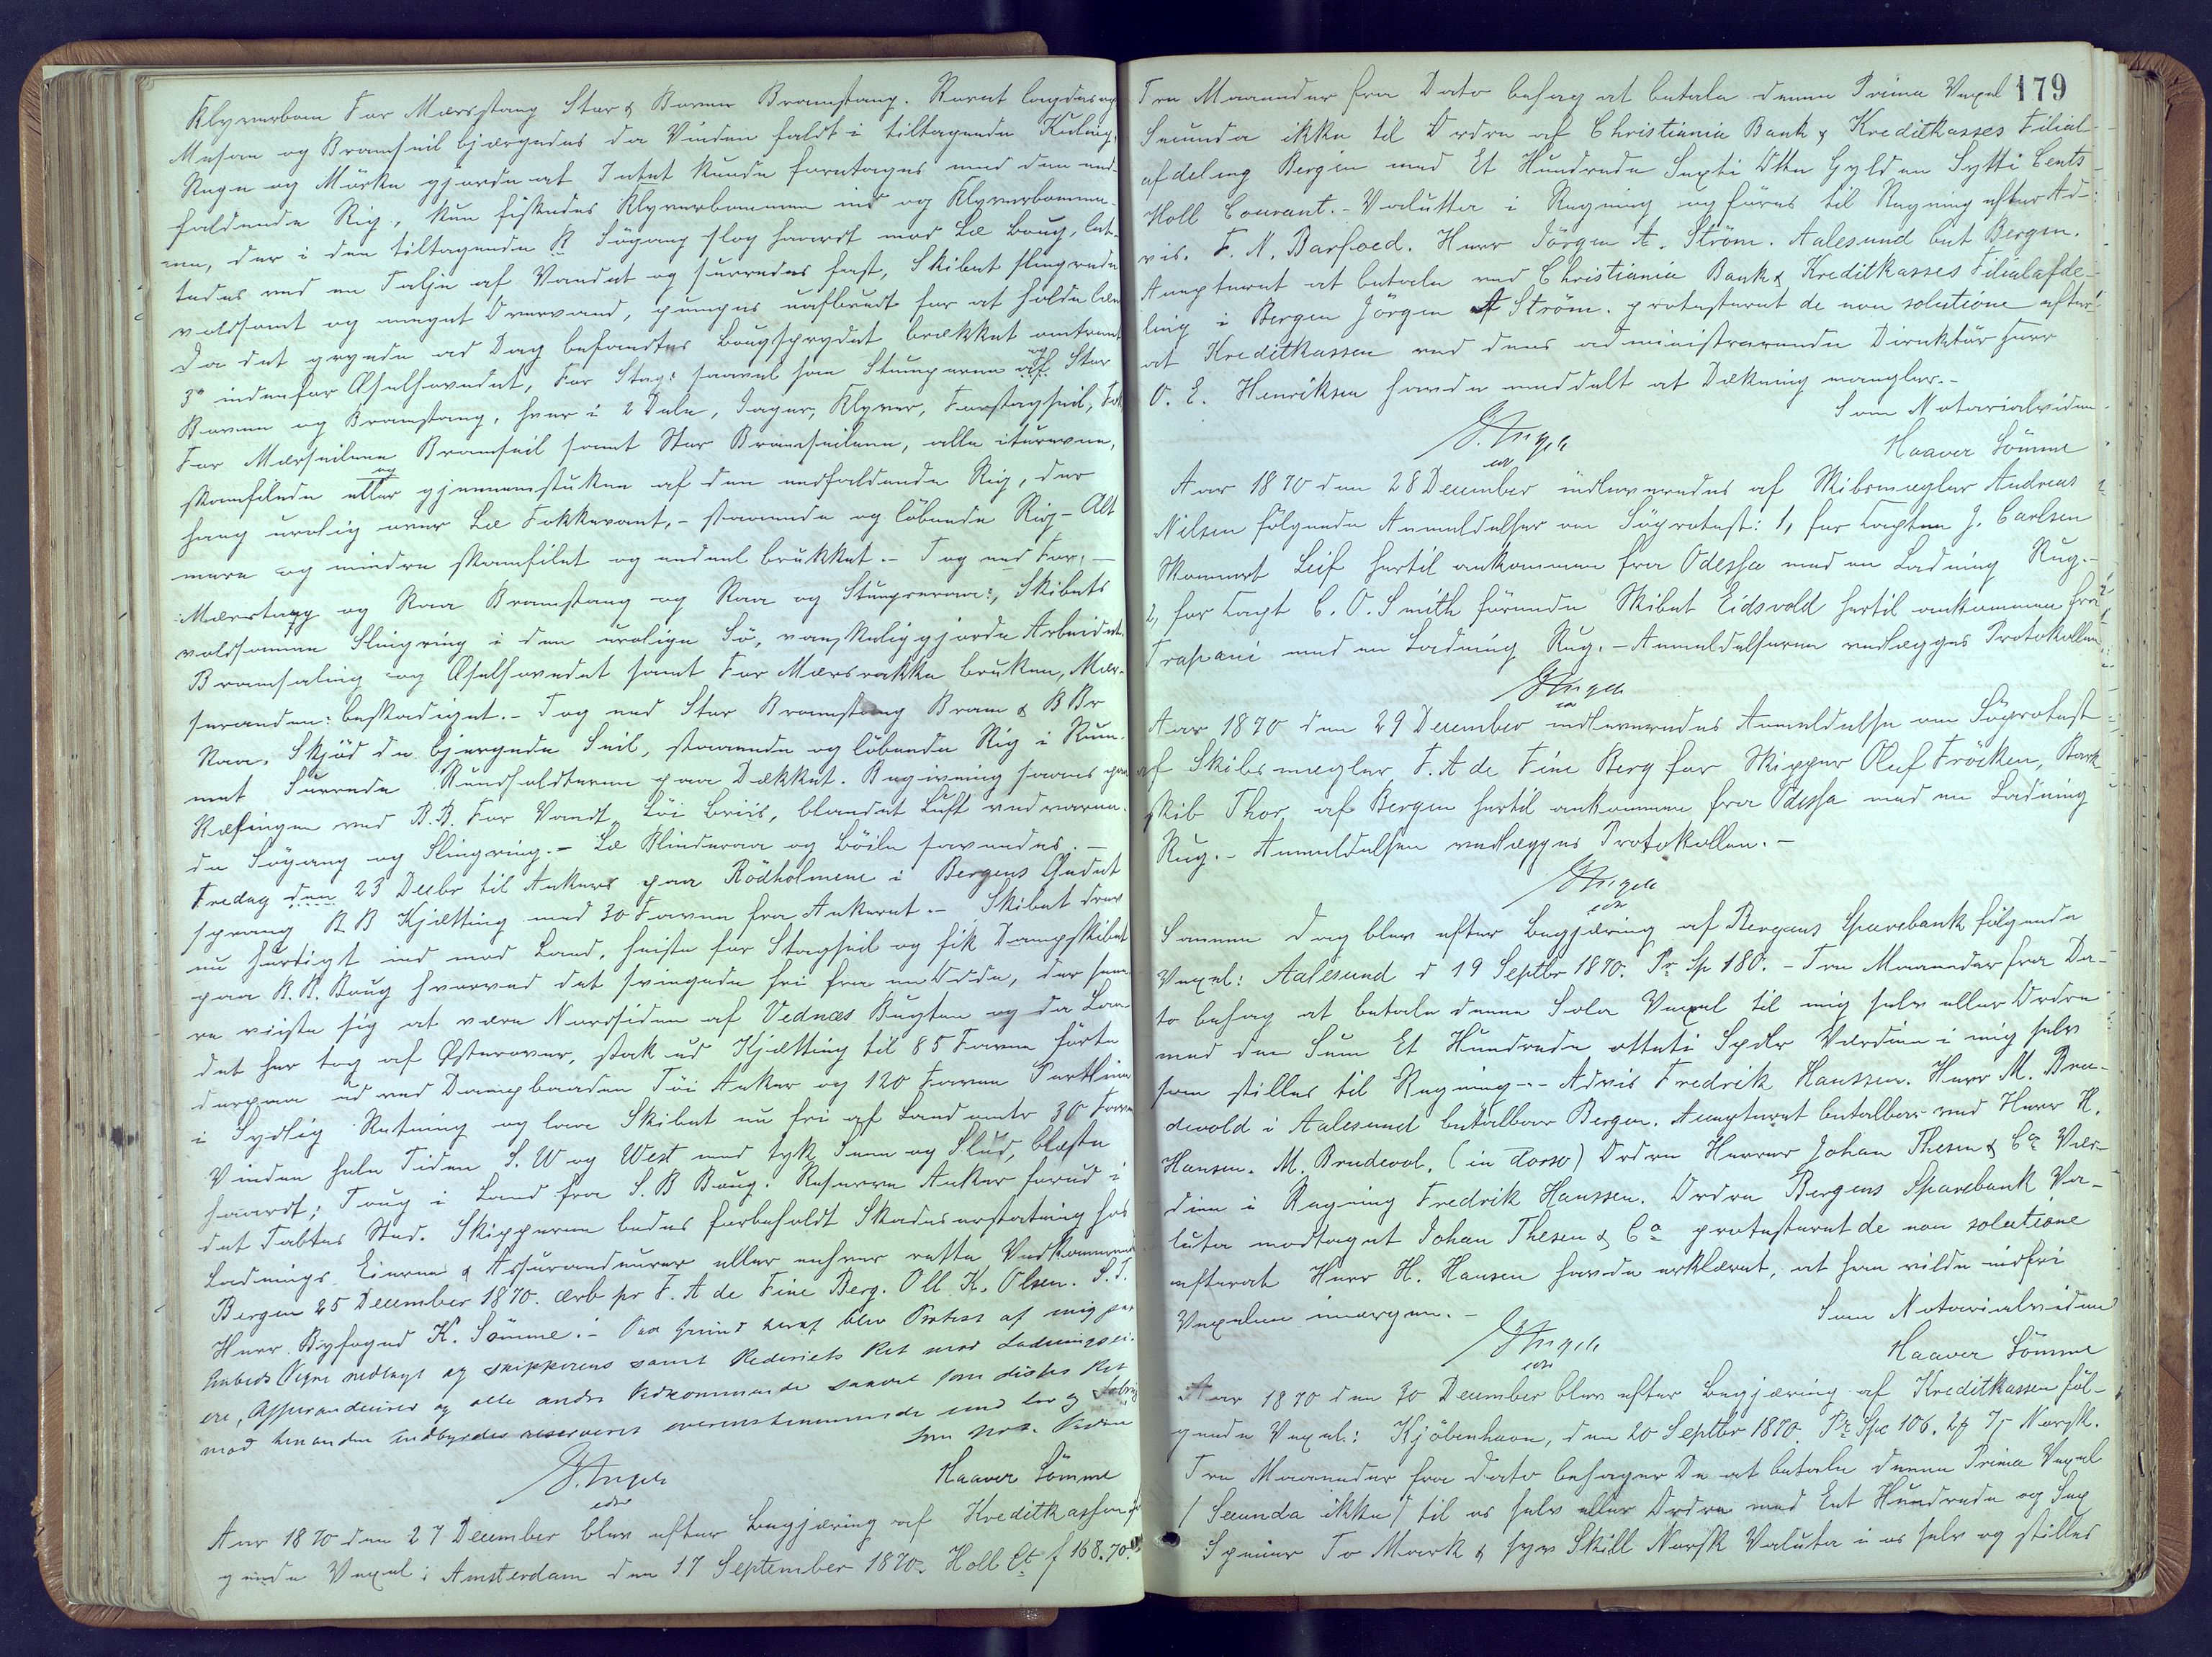 Klyverbom For Mærsstang Stor & Boven Bramstang. Roret lagdes op
Mesan og Bramseil bjærgedes da Vinden faldt i tiltagende Kuling,
Regn og Mörke gjorde at Intet kunde foretages med den ned-
faldende Rig, kun fiskedes Klyverbommen ind og Klyverbommen-
nen, der i den tiltagende Sögang slog haardt mod Læ Boug, let-
tedes ved en Talje af Vandet og surredes fast, Skibet slingrede
voldsomt og meget Overvand, pumpes uafbrudt for at holde læns
Da det gryede ad Dag befandtes Bougsprydet brækket omtrent
3' indenfor Æselhovedet, For Stag: saavel som Stumperne af Stor
Boven og Bramstang, hver i 2 Dele, Jager, Klyver, Forstagseil, Fok
For Mærsseilene Bramseil samt Stor Bramseilene, alle iturevne,
skamfilede og gjennemstukne af den nedfaldende Rig, der
hang urolig over Læ Fokkevant, - staaende og löbende Rig - Alt
mere og mindre skamfilet og endeel brukket. - Tog ned For, -
Mærsstang og Raa Bramstang og Raa og Stumperaa:, Skibets
voldsomme Slingring i den urolige Sö, vanskeliggjorde Arbeidet.
Bramsaling og Æselhovedet samt For Mærsrakke bruken, Mær-
seranden: beskadiget. - Tog ned Stor Bramstang Bram & B Br
Raa. Skjöd de bjergede Seil, staaende og löbende Rig i Rum-
met Surrede Rundholdterne paa Dækket. Begivning saaes paa
Ræhingen ved B.B. For Vandt Löi Briis, blandet Luft vedvaren-
de Sögang og Slingring. - Læ Blinderaa og Böile savnedes. -
Fredag den 23 Decbr til Ankers paa Rödholmene i Bergens Gabet
sprang B B Kjætting med 30 Favne fra Ankeret. - Skibet drev
nu hurtigt ind mod Land, heiste for Stagseil og fik Dampskibet
paa B.B. Boug hvorved det svingede fri fra en Odde, der sene-
re viiste sig at være Nordsiden af Vednæs Bugten og da Lan-
det her tog af Österover, stak ud Kjætting til 85 Favne förte
derpaa ud ved Dampbaaden Töi Anker og 120 Favne Pertline
i Sydlig Retning og laae Skibet nu fri af Land omtr 30 Favne
Vinden hele Tiden S. W og West med tyk Luft og Slud, blæste
haardt; Toug i Land fra S. B Boug. Reserve Anker forud i
det Tabtes Sted. Skipperen bedes forbeholdt Skadeserstatning hos
Ladnings Eierne & Assurandeurer eller enhver rette Vedkommende
Bergen 25 December 1870. ærb pr F. A de Fine Berg. Oll. K. Olsen. S. T.
Herr Byfogud K. Sömme. - Paa Grund heraf blev Protest af mig paa
Embeds Vegne nedlagt og skipperens samt Rederiets Ret mod Ladningsei-
ere, Assurandeurer og alle andre Vedkommende saavel som disses Ret
mod hinanden indbyrdes reserveret overensstemmende med Lov og Sædvane
Som Not. Vidne
Haaver Sömme
Aar 1870 den 27 December blev efter begjæring af Kreditkassen föl
gende Vexel: Amsterdam den 17 September 1870. Holl Ct f 168.70.
179
Tre Maaneder fra Dato behag at betale denne Prima Vexel
Secunda ikke til Ordre af Christiania Bank & Kreditkasses Filial-
afdeling Bergen med Et Hundrede Sexti Otte Gylden Sytti Cents
Holl Courant. - Valutta i Regning og föres til Regning efter Ad-
vis. F. N. Barfoed. Herr Jörgen A. Ström. Aalesund bet Bergen.
Accepteret at betale ved Christiania Bank & Kreditkasses Filialafde-
ling i Bergen Jörgen A Ström. protesteret de non solutione efter
at Kreditkassen ved dens administrerende Direktör Herr
O. E. Henriksen havde meddelt at Dækning mangler. -
Som Notarialvidne
Haaver Sömme
Aar 1870 den 28 December indleveredes af Skibsmægler Andreas
Nilsen fölgende Anmeldelser om Söprotest: 1, for Capten J. Carlsen
Skonnert Leif hertil ankommen fra Odessa med en Ladning Rug. -
2, for Capt C. O. Smith förende Skibet Eidsvold hertil ankommen fra
Trapani med en Ladning Rug. - Anmeldelserne vedlægges Protokollen.
Aar 1870 den 29 December indleveredes Anmeldelse om Söprotest
af Skibsmægler F. A de Fine Berg for Skipper Oluf Fröcken, Bark
skib Thor af Bergen hertil ankommen fra Odessa med en Ladning
Rug. - Anmeldelsen vedlægges Protokollen. -
Samme Dag blev efter Begjæring af Bergens Sparebank fölgende
Vexel: Aalesund d 19 Septbr 1870. Pr Sp 180. - Tre Maaneder fra Da-
to behag at betale denne Sola Vexel til mig selv eller Ordre
med den Sum Et Hundrede otteti Spdlr Værdien i mig selv
som stilles til Regning - - Advis Fredrik Hanssen. Herr M. Bru-
devold i Aalesund betalbar Bergen. Accepteret betalbar ved Herr H.
Hansen. M. Brudevol. (in dorso) Ordre Herrer Johan Thesen & Co Vær-
dien i Regning Fredrik Hanssen. Ordre Bergens Sparebank Va-
luta modtaget Johan Thesen & Co protesteret de non solutione
efterat Herr H. Hansen havde erklæret, at han vilde indfri
Vexelen imorgen. -
Som Notarialvidne
Haaver Sömme
Aar 1870 den 30 December blev efter begjæring af Kreditkassen föl-
gende Vexel: Kjöbenhavn, den 20 Septbr 1870. Pr Spc 106. 2 Norsk.
Tre Maaneder fra dato behager De at betale denne Prima Vexel
(Secunda ikke) til os selv eller Ordre med Eet Hundrede og Sex
Specier To Mark & syv Skill Norsk Valuta i os selv og stilles